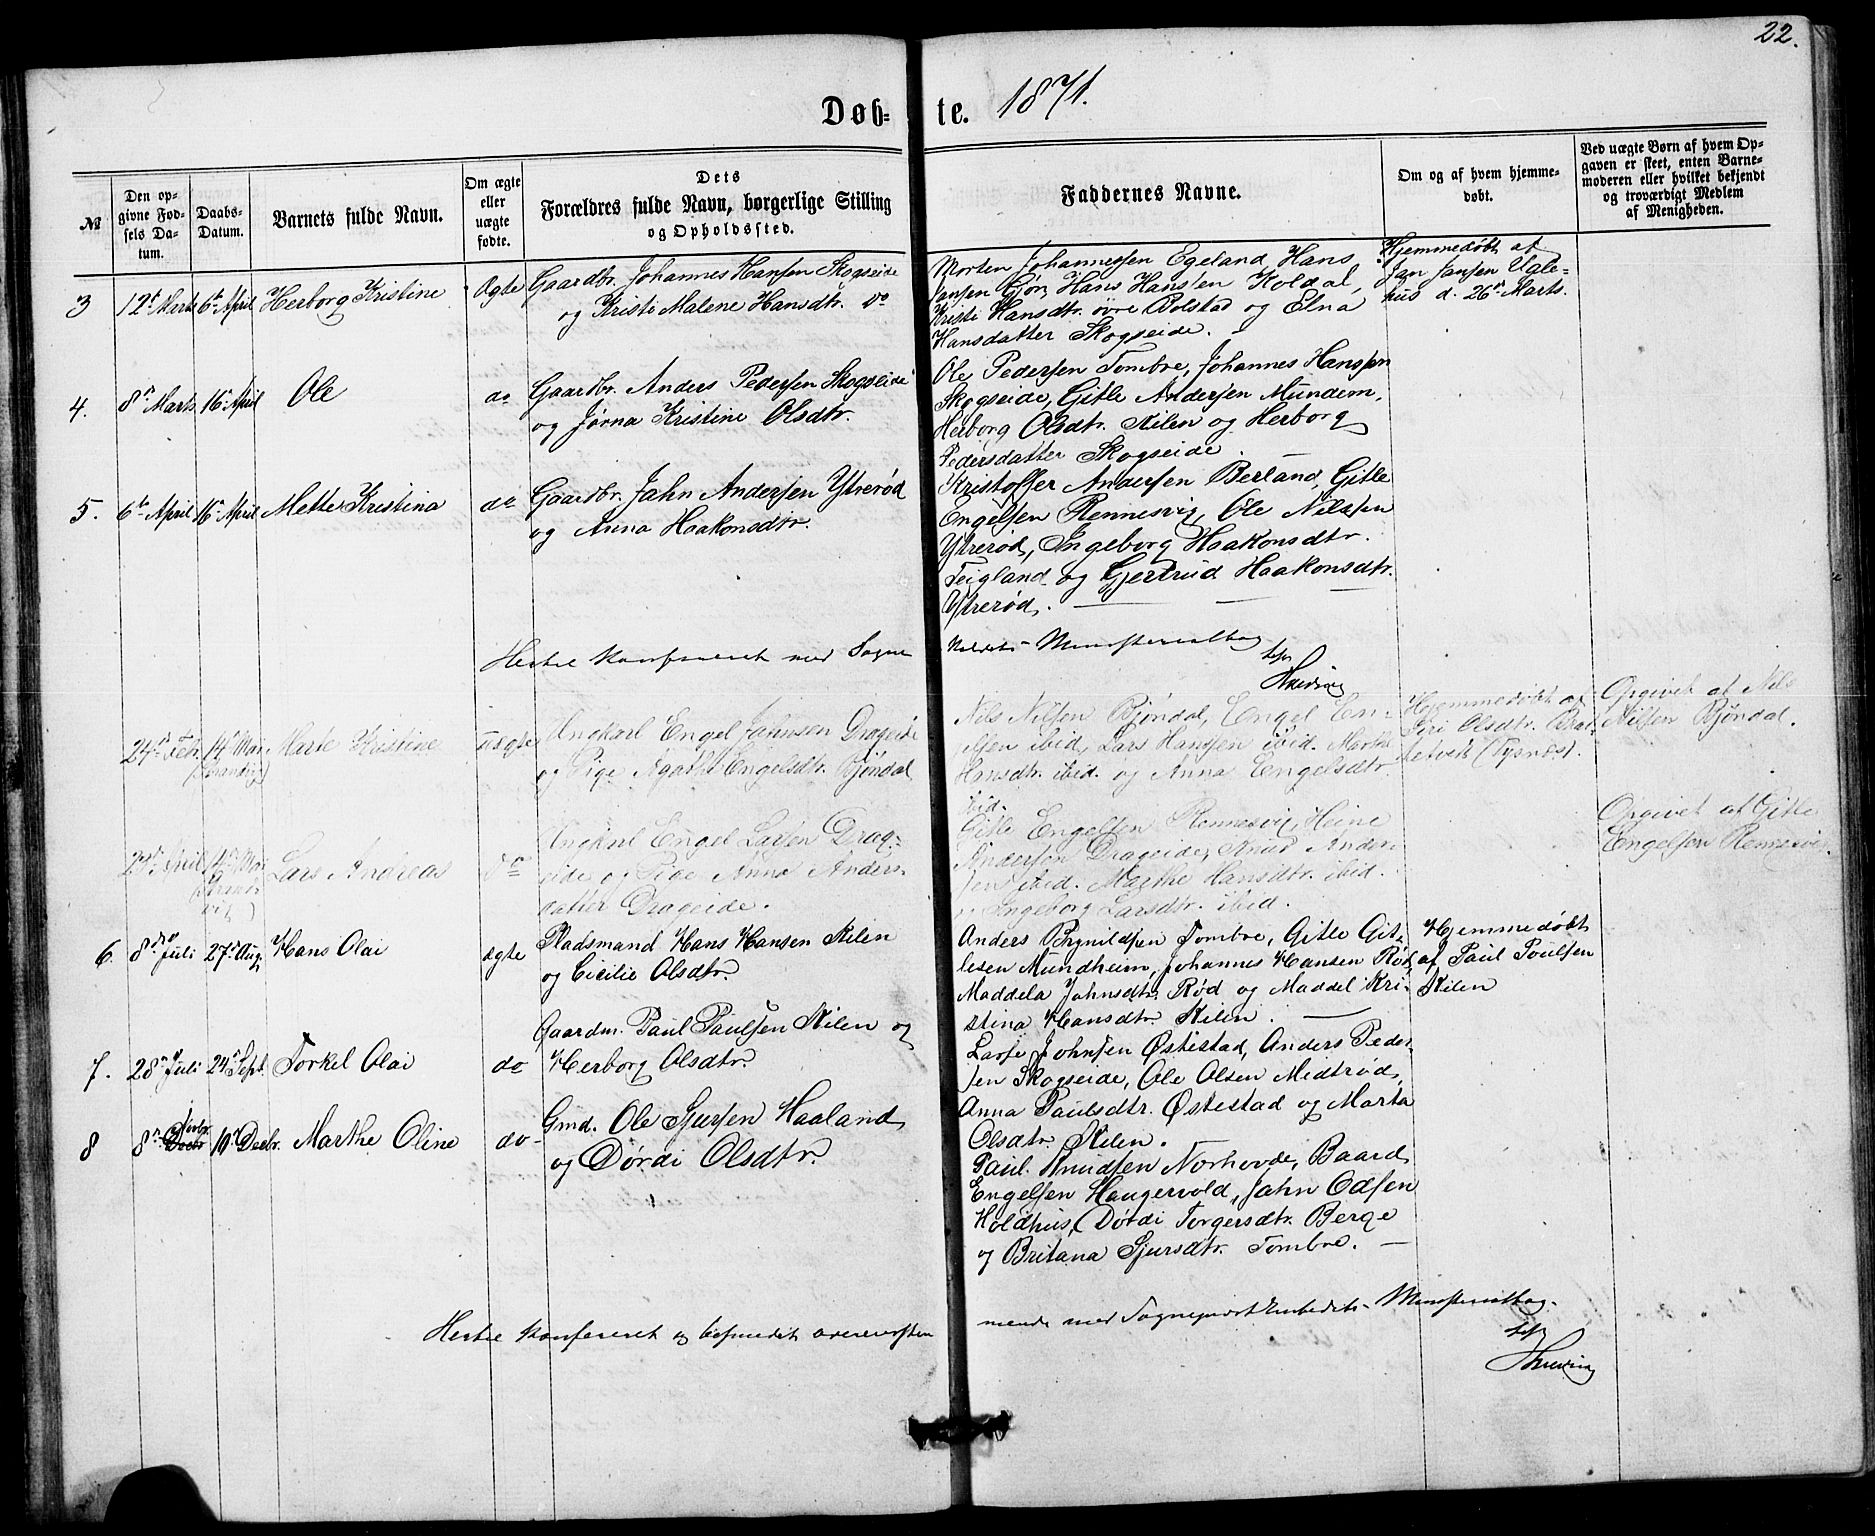 22.
Døb= te. 1871.
№
Den op-
givne Fød-
sels Da-
tum.
Daabs-
Datum.
Barnets fulde Navn.
Om ægte
eller
uægte
fødte.
Dets
Forældres fulde Navn, borgerlige Stilling
og Opholdssted.
Faddernes Navne.
Om og af hvem hjemme-
døbt.
Ved uægte Børn af hvem Op-
gaven er skeet, enten Barne-
moderen eller hvilket bekjendt
og troværdigt Medlem
af Menigheden.
3
12te Marts
6te April
Herborg Kristine
Ægte
Gaardbr. Johannes Hansen Skogseide
og Kristi Malene Hansdtr. do
Morten Johannessen Egeland, Hans
Jansen Gjøn, Hans Hansen Koldal,
Kristi Hansdtr. øvre Bolstad og Elna
Hansdatter Skogseide.
Hjemmedøbt af
Jan Jansen Ugle-
hus d. 26de Marts.
4.
8de Marts
16de April
Ole
do
Gaardbr. Anders Pedersen Skogseide
og Jørna Kristine Olsdtr.
Ole Pedersen Tombre, Johannes Hanssen
Skogseide, Gitle Andersen Mundem,
Herborg Olsdtr. Kilen og Herborg
Pedersdatter Skogseide.
5.
6te April
16de April
Mette Kristina
do
Gaardbr. Jahn Andersen Ytrerød
og Anna Haakonsdtr.
Kristoffer Andersen Berland, Gitle
Engelsen Rennesvig, Ole Nilssen
Ytrerød, Ingeborg Haakonsdtr.
Teigland og Gjertrud Haakonsdtr.
Ytrerød.
Hertil konfereret med Sogne
kaldets Ministerialbog
24de Febr.
14de Mai
(Strandvig)
Marte Kristine
uægte
Ungkarl Engel Jahnsen Drageide
og Pige Agathe Engelsdtr. Bjøndal
Nils Nilsen Bjøndal, Engel En-
gelsen ibid, Lars Hanssen ibid. Marthe
Hansdtr. ibid. og Anna Engelsdtr.
ibid.
Hjemmedøbt af
Siri Olsdtr.
(Tysnes).
Opgivet af Nils
Nilsen Bjøndal.
April
14de Mai
(Strand-
vig)
Lars Andreas
do
Ungkarl Engel Larsen Drag-
eide og Pige Anna Anders-
datter Drageide.
Gitle Engelsen Rennesvig, Heine
Andersen Drageide, Knud Ander-
sen ibid. Marthe Hansdtr. ibid.
og Ingeborg Larsdtr. ibid.
Opgivet af Gitle
Engelsen Rennesvig.
6.
8de Juli
27de Aug.
Hans Olai
ægte
Pladsmand Hans Hansen Kilen
og Cicilie Olsdtr.
Anders Brynildsen Tombre, Gitle Git-
lesen Mundheim, Johannes Hansen Rød,
Maddela Jahnsdtr. Rød og Maddel Kri-
stina Hansdtr. Kilen.
Hjemmedøbt
af Paul Poulsen
Kilen
7.
28de Juli
24de Sept.
Torkel Olai
do
Gaardm. Paul Paulsen Kilen og
Herborg Olsdtr.
Lasse Johnsen Østestad, Anders Peder-
sen Skogseide, Ole Olsen Midtrød,
Anna Paulsdtr. Østestad og Marta
Olsdtr. Kilen.
8
8de Novbr.
10de Decbr.
Marthe Oline
do
Gmd. Ole Sjursen Haaland
og Dørdi Olsdtr.
Paul Knudsen Norhovde, Baard
Engelsen Haugervold, Jahn Odsen
Holdhus, Dordi Torgersdtr. Berge
og Britana Sjursdtr. Tombre.
Hertil konfereret og befundet overensstem
mende med Sognepræst Embedets Ministerialbog.